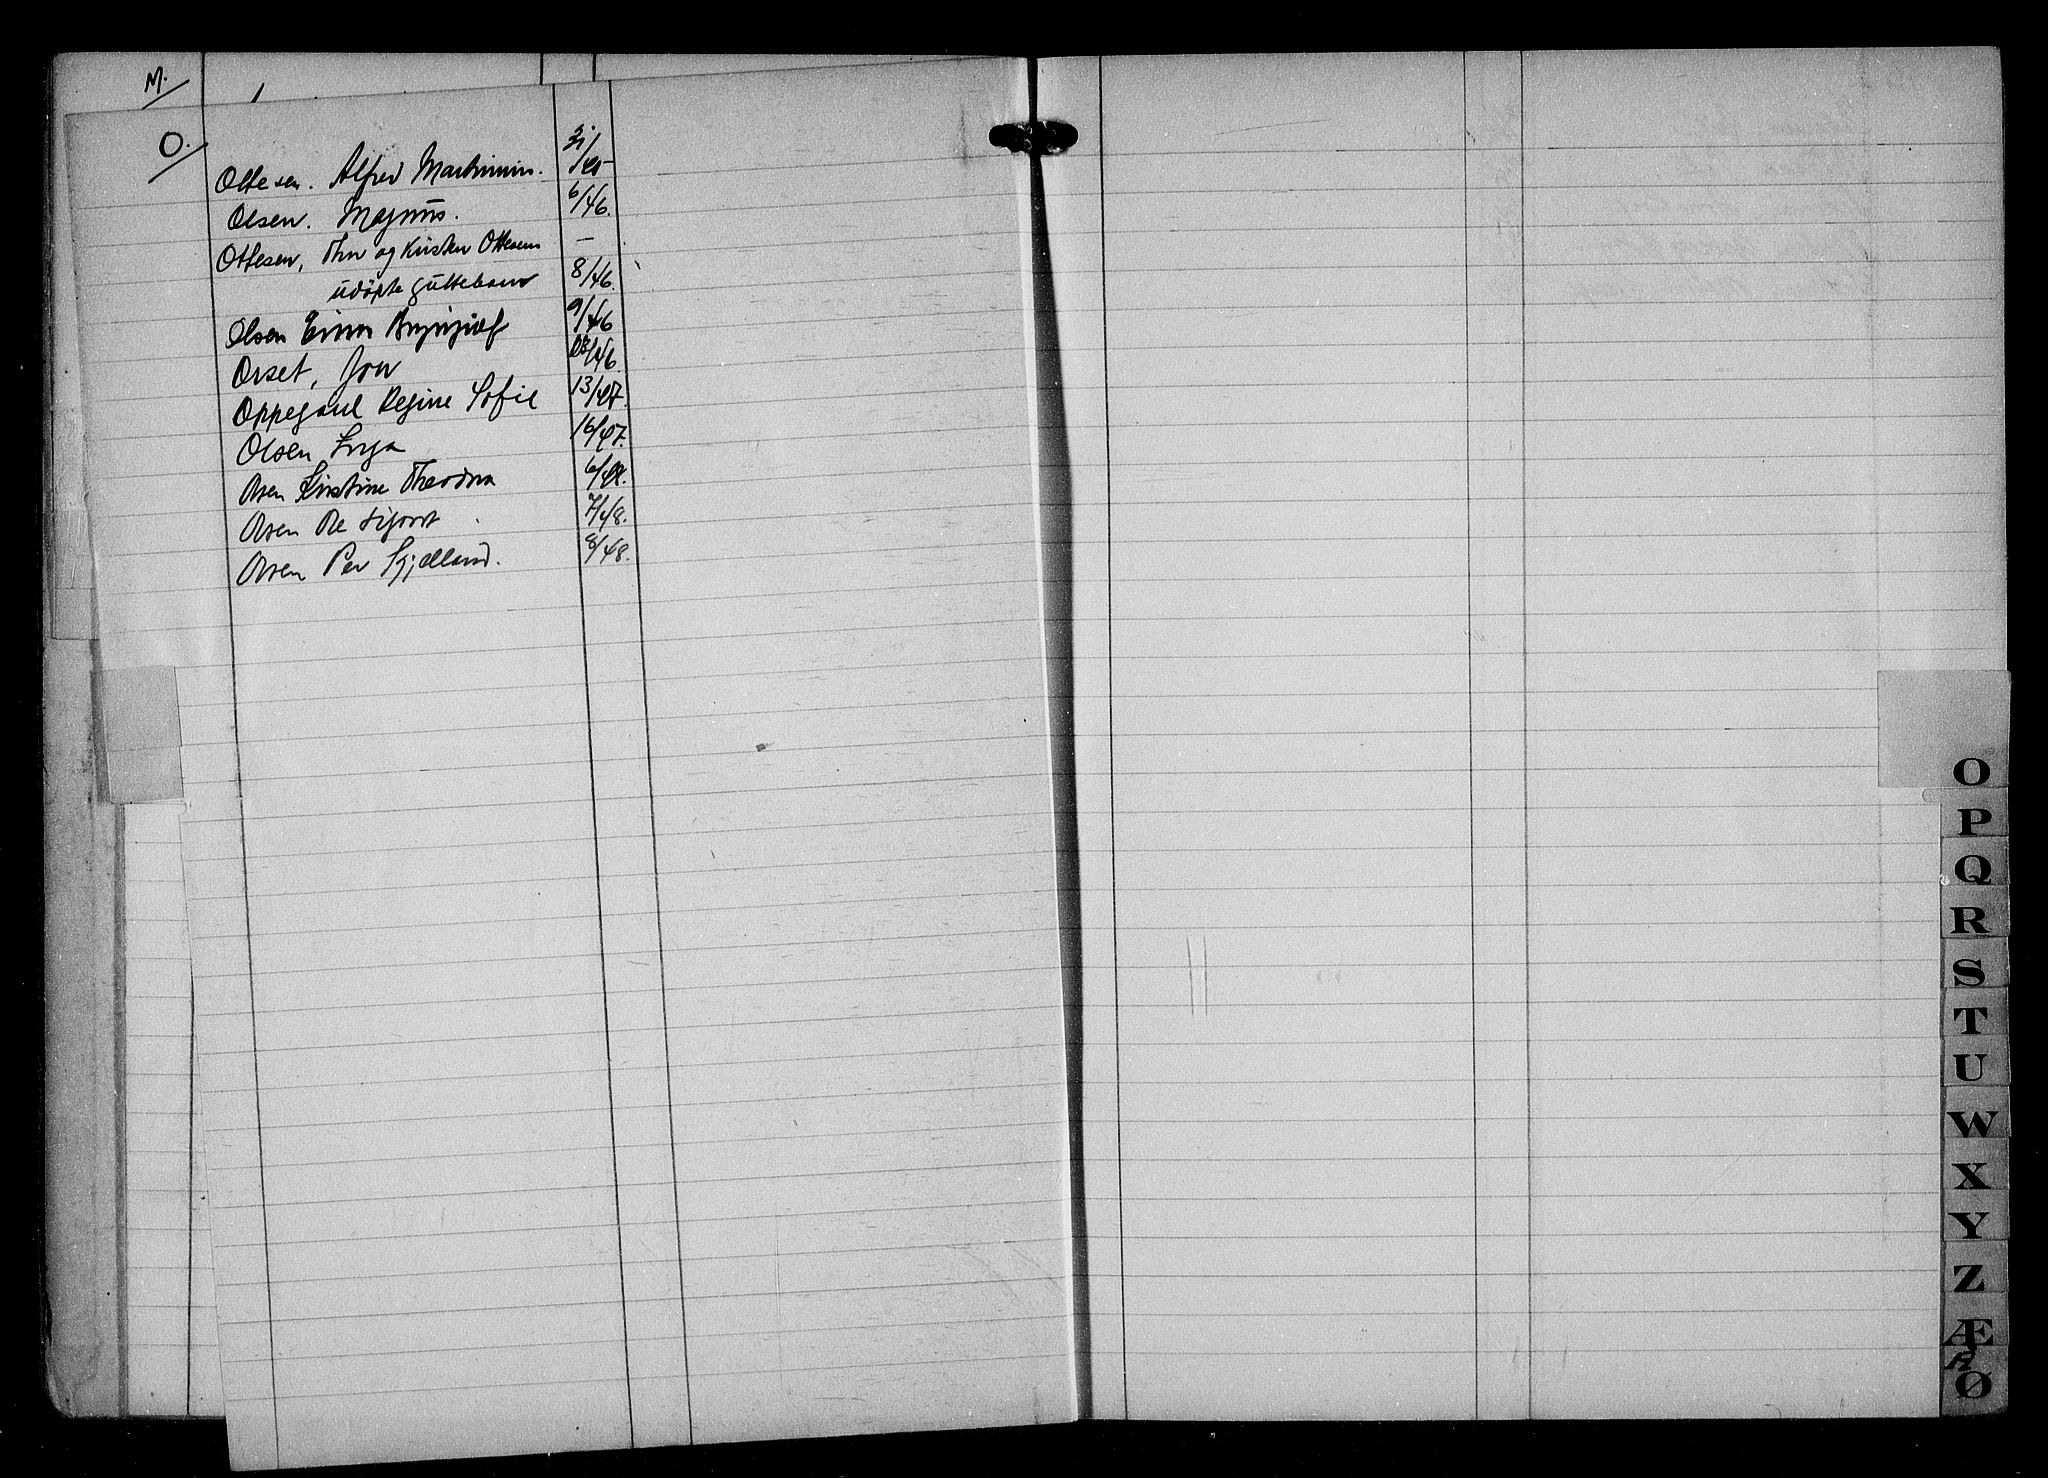 M.
O.
Ottesen. Alfred Martinius. 21/45
Olsen. Magnus. 6/46.
Ottesen, Thor og Kirsten Ottesens –
udøpte guttebarn 8/46.
Olsen Einar Brynjulf 9/46
Orset, Jon /46.
Oppegaard Regine Sofie 13/47.
Olsen Inga 16/47.
Olsen Kirstine Theodora 6/48.
Olsen Ole Sigvart 7/48.
Olsen Per Kjelland. 8/48.
O
P
Q
R
S
T
U
W
X
Y
Z
Æ
Ø